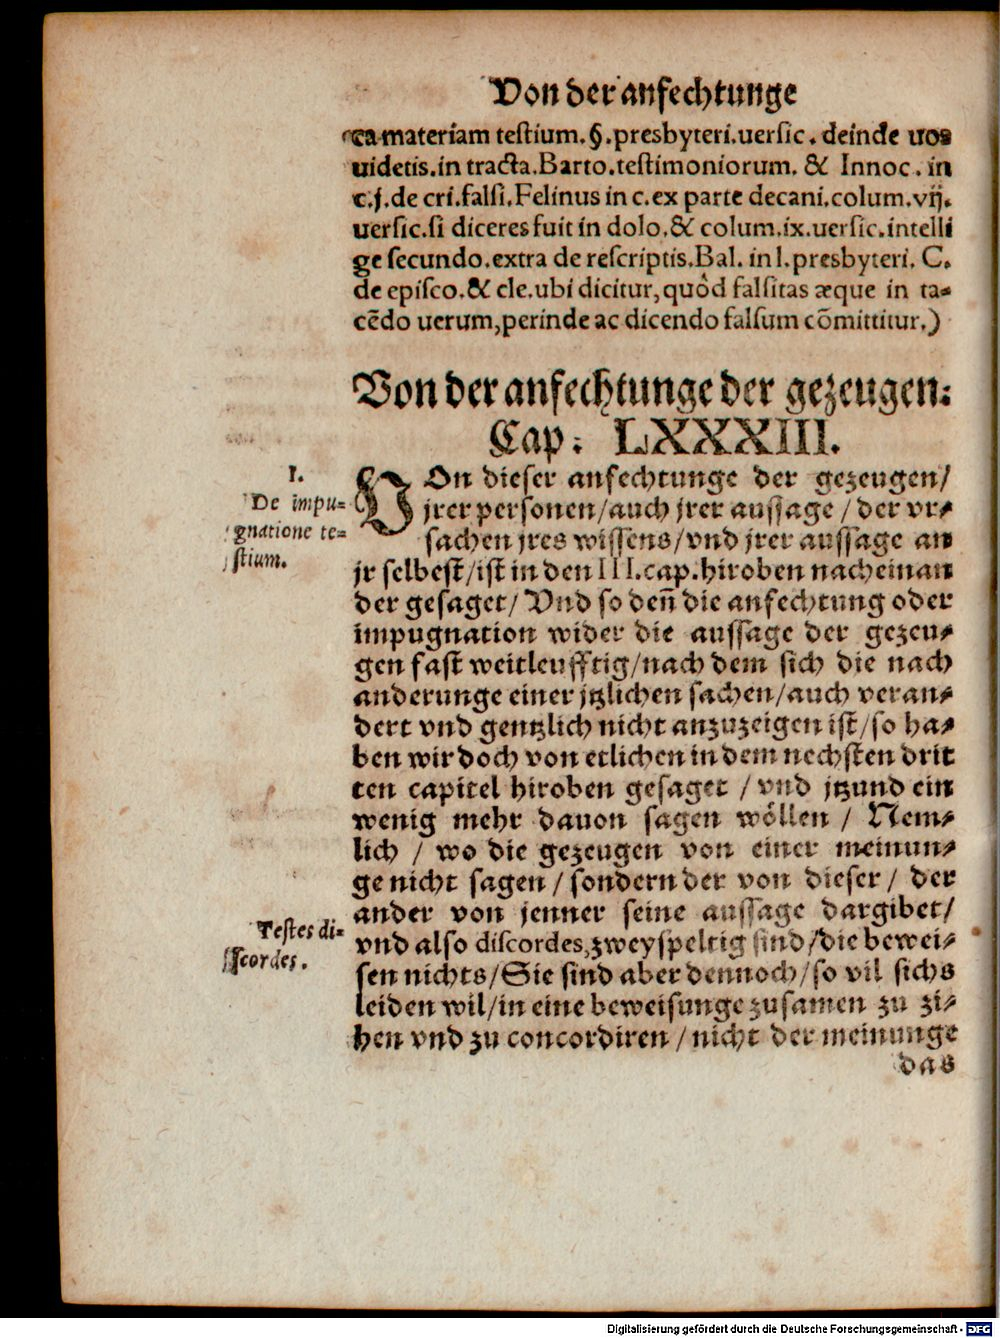 Von der anfechtunge
ca materiam testium.§.presbyteri.uersic. deinde uos
uidetis.in tracta.Barto.testimoniorum. & Innoc. in
c.j.de cri.falsi.Felinus in c.ex parte decani.colum.vij.
uersic.si diceres fuit in dolo.& colum.ix.uersic.intelli
ge secundo.extra de rescriptis.Bal. in l.presbyteri. C.
de episco.& cle.ubi dicitur,quòd falsitas æque in ta-
cẽdo uerum,perinde ac dicendo falsum cõmittitur.)
Von der anfechtunge der gezeugen.
Cap. LXXXIII.
I.
De impu-
gnatione te-
stium.
VOn dieser anfechtunge der gezeugen/
jrer personen/auch jrer aussage/der vr-
sachen jres wissens/vnd jrer aussage an
jr selbest/ist in den III.cap.hiroben nacheinan
der gesaget/Vnd so deñ die anfechtung oder
impugnation wider die aussage der gezeu-
gen fast weitleufftig/nach dem sich die nach
anderunge einer jtzlichen sachen/auch veran-
dert vnd gentzlich nicht anzuzeigen ist/so ha-
ben wir doch von etlichen in dem nechsten drit
ten capitel hiroben gesaget/vnd jtzund ein
wenig mehr dauon sagen wöllen/Nem-
lich/wo die gezeugen von einer meinun-
ge nicht sagen/sondern der von dieser/der
ander von jenner seine aussage dargibet/
Testes di-
scordes.
vnd also discordes,zweyspeltig sind/die bewei-
sen nichts/Sie sind aber dennoch/so vil sichs
leiden wil/in eine beweisunge zusamen zu zi-
hen vnd zu concordiren/nicht der meinunge
das
Digitalisierung gefördert durch die Deutsche Forschungsgemeinschaft - DFG